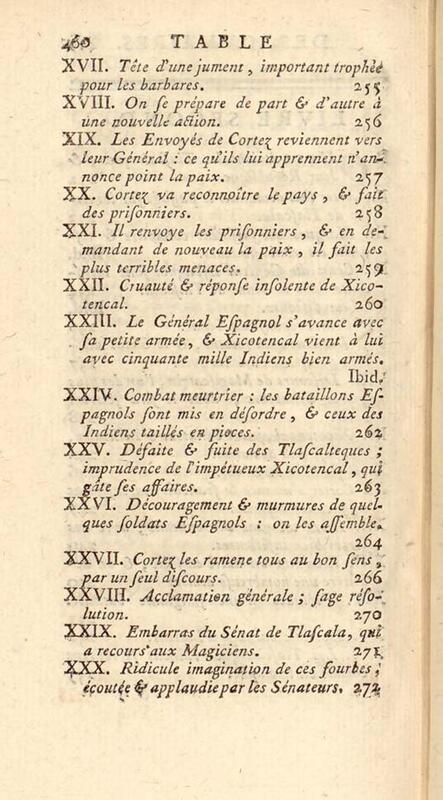 460 TABLE
XVII. Tête d'une jument, important trophée
pour les barbares. 255
XVIII. On ſe prépare de part & d'autre à
une nouvelle action. 256
XIX. Les Envoyés de Cortez reviennent vers
leur Général : ce qu'ils lui apprennent n'an-
nonce point la paix. 257
XX. Cortez va reconnoître le pays, & fait
des priſonniers. 258
XXI. Il renvoye les priſonniers, & en de-
mandant de nouveau la paix, il fait les
plus terribles menaces. 259
XXII. Cruauté & réponſe inſolente de Xico-
tencal. 260
XXIII. Le Général Eſpagnol s'avance avec
ſa petite armée, & Xicotencal vient à lui
avec cinquante mille Indiens bien armés.
Ibid.
XXIV. Combat meurtrier : les bataillons Eſ-
pagnols ſont mis en déſordre, & ceux des
Indiens taillés en pieces. 262
XXV. Défaite & fuite des Tlaſcalteques ;
imprudence de l'impétueux Xicotencal, qui
gâte ſes affaires. 263
XXVI. Découragement & murmures de quel-
ques ſoldats Eſpagnols : on les aſſemble.
264
XXVII. Cortez les ramene tous au bon ſens,
par un ſeul diſcours. 266
XXVIII. Acclamation générale ; ſage réſo-
lution. 270
XXIX. Embarras du Sénat de Tlaſcala, qui
a recours aux Magiciens. 271
XXX. Ridicule imagination de ces fourbes,
écoutée & applaudie par les Sénateurs. 272